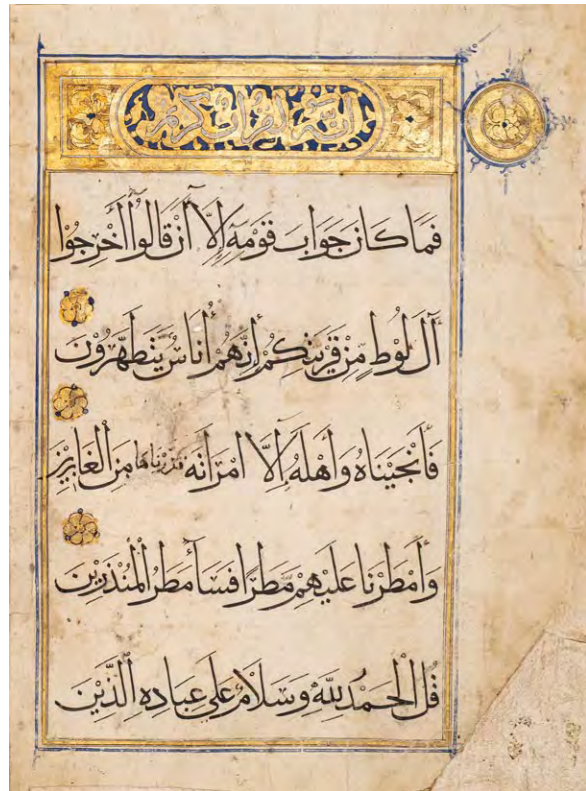 إنه لقرآن كريم
فَمَا كَانَ جَوَابَ قَوْمِهِ إِلَّا أَنْ قَالُوا أَخْرِجُوا
آلَ لُوطٍ مِّنْ قَرْيَتِكُمْ إِنَّهُمْ أُنَاسٌ يَتَطَهَّرُونَ
فَأَنْجَيْنَاهُ وَأَهْلَهُ إِلَّا امْرَأَتَهُ قَدَّرْنَاهَا مِنَ الْغَابِرِينَ
وَأَمْطَرْنَا عَلَيْهِمْ مَطَرًا فَسَاءَ مَطَرُ الْمُنْذَرِينَ
قُلِ الْحَمْدُ لِلَّهِ وَسَلَامٌ عَلَى عِبَادِهِ الَّذِينَ